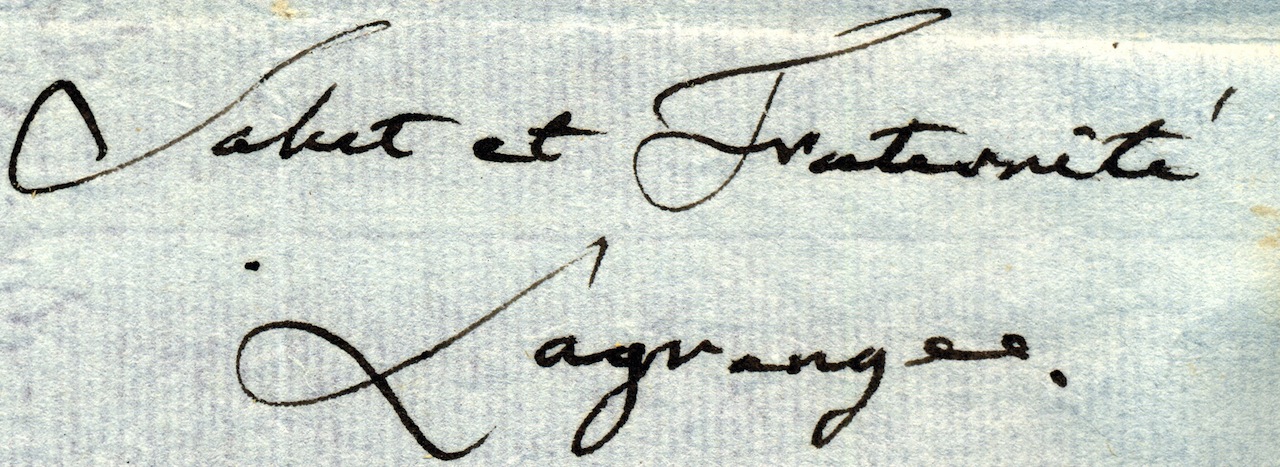 Salut et Fraternité
Lagrange.